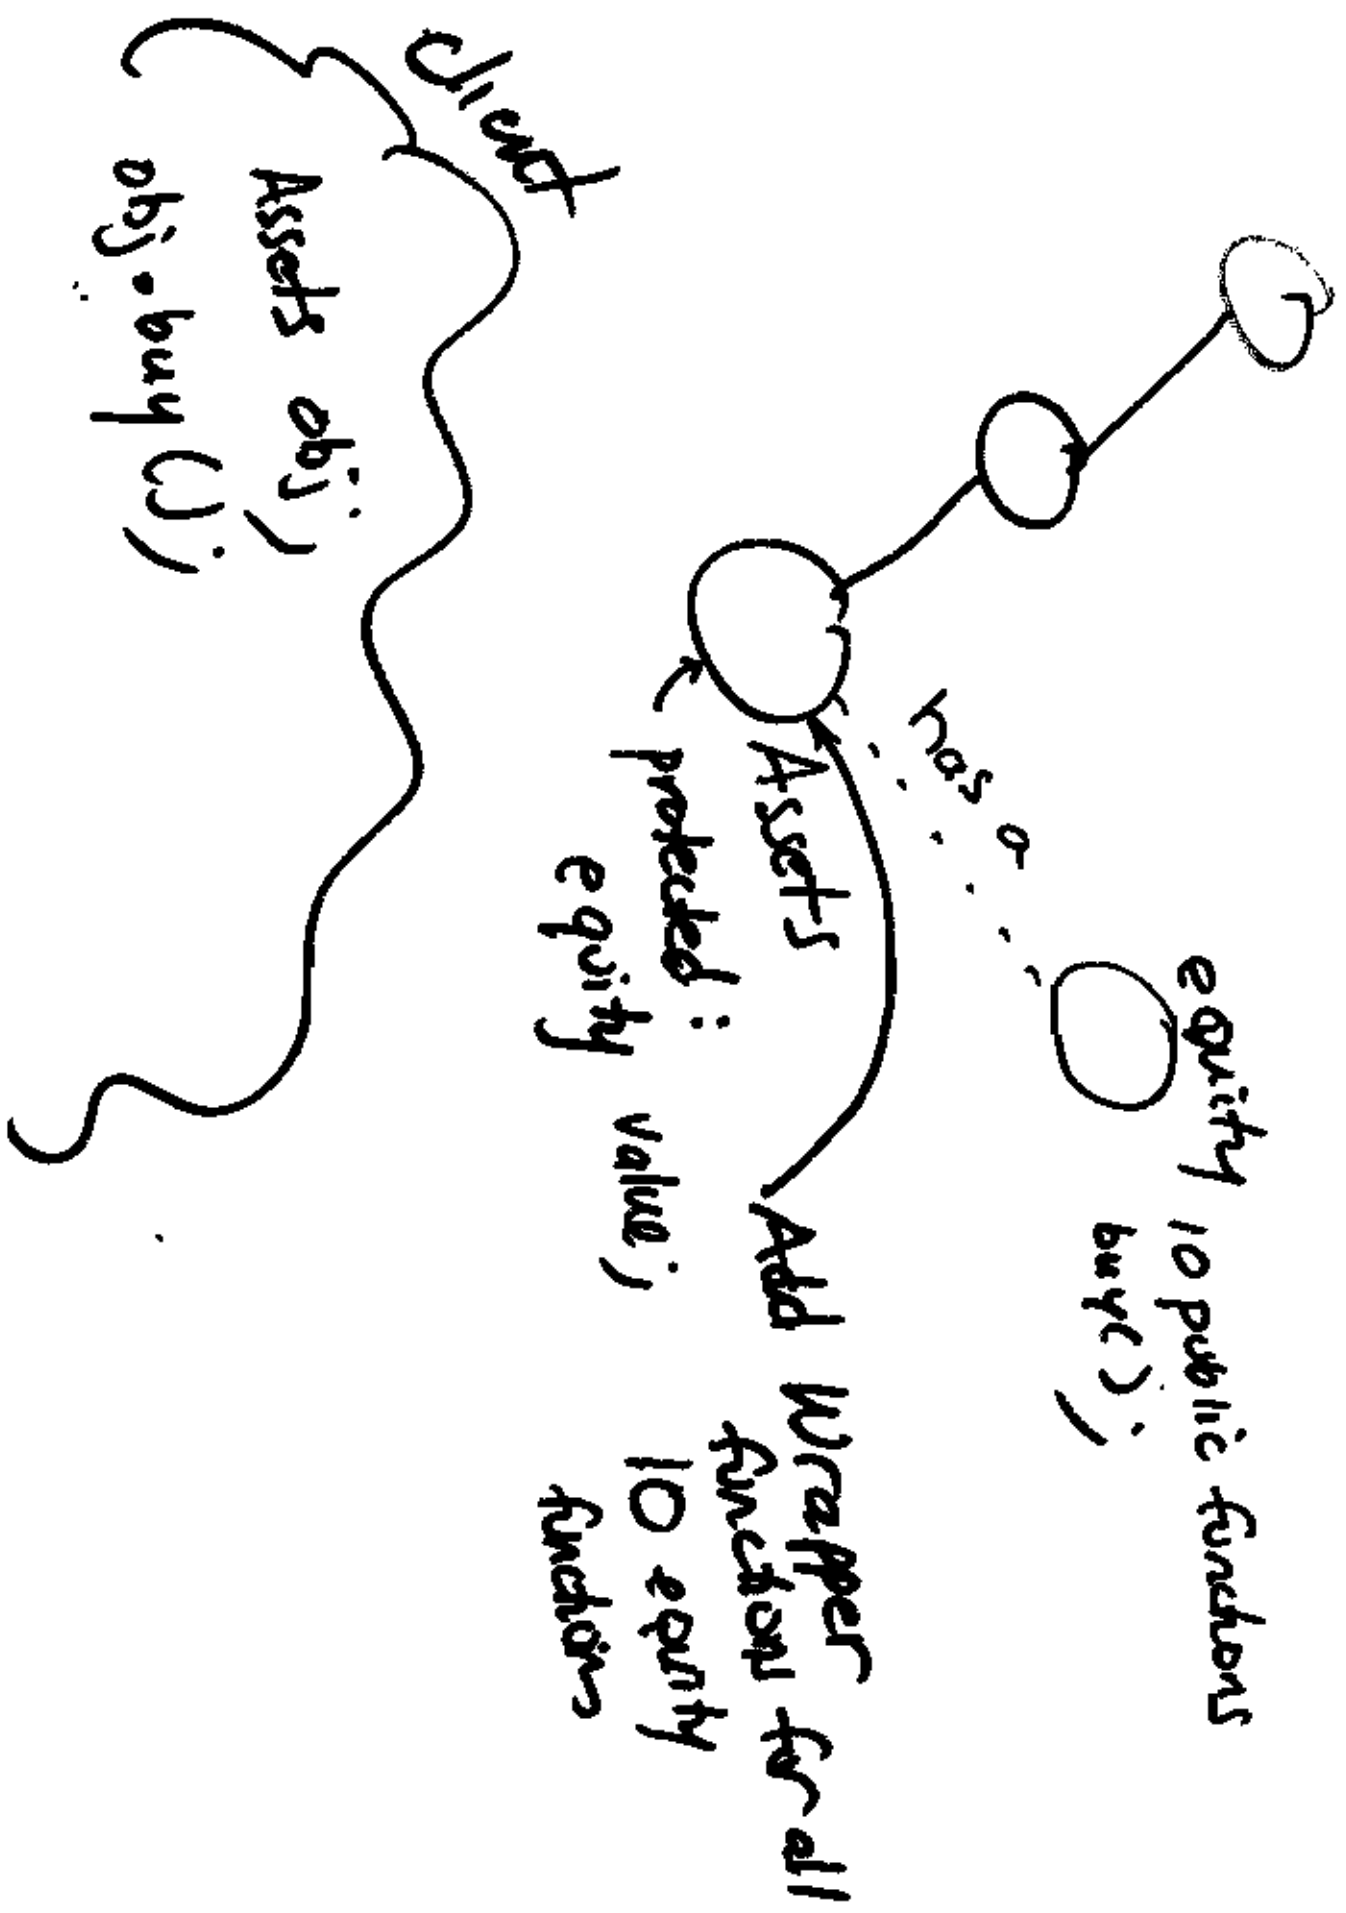 equity 10 public functions
buy();
has a
Assets
protected:
equity value;
Add Wrapper
functions for all
10 equity
functions
client
Assets obj;
obj.buy();